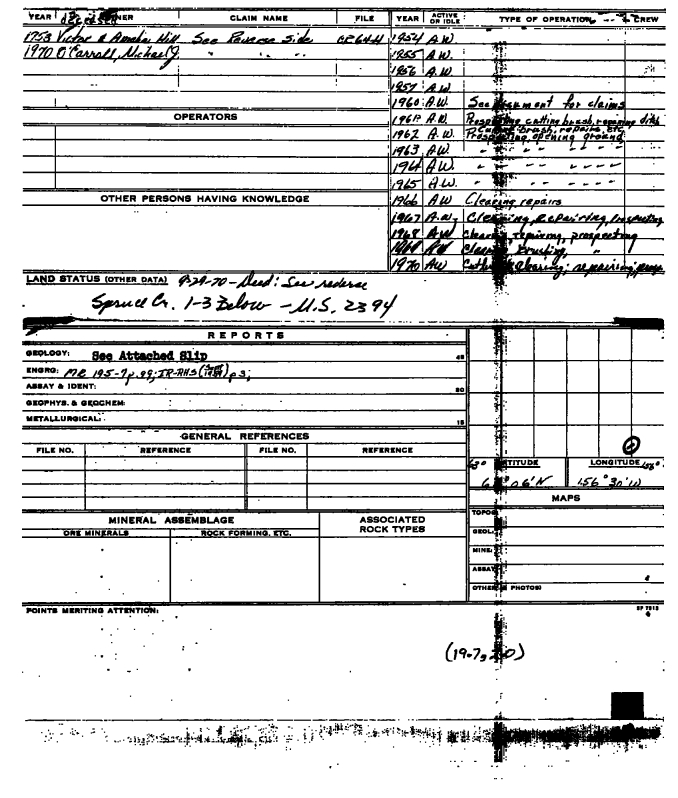 YEAR OWNER CLAIM NAME FILE YEAR ACTIVE OR IDLE TYPE OF OPERATION CREW
1953 Victor & Amelia Hill See Reverse Side 1954 A.W.
1970 O'Carroll, Michael J. " " " 1955 A.W.
1956 A.W.
1957 A.W.
1960 A.W. See document for claims
OPERATORS
1961 A.W. Prospecting cutting brush, repairing ditch
1962 A.W. Cutting brush, repairs, etc. Prospecting, opening ground
1963 A.W. " " " - - - -
1964 A.W. " " " - - - -
1965 A.W. " " " - - - -
OTHER PERSONS HAVING KNOWLEDGE
1966 AW Clearing repairs
1967 A.W. Clearing, Repairing, Prospecting
1968 AW Clearing, repairing, prospecting
1969 AW Clearing, "
1970 AW Clearing; repairing;
LAND STATUS (OTHER DATA) 9-29-70 - Deed: See reverse
Spruce Cr. 1-3 Below - U.S. 2394
REPORTS
GEOLOGY: See Attached Slip
ENGRG: MR 195-7 p.99; IR-RHS p3;
ASSAY & IDENT:
GEOPHYS. & GEOCHEM:
METALLURGICAL:
GENERAL REFERENCES
FILE NO. REFERENCE FILE NO. REFERENCE
63° LATITUDE LONGITUDE 156°
63°06'N 156°30'W
MAPS
MINERAL ASSEMBLAGE ASSOCIATED ROCK TYPES
ORE MINERALS ROCK FORMING, ETC.
TOPOG
GEOL.
MINE
ASSAY
OTHER & PHOTOS
POINTS MERITING ATTENTION:
(19-7, 20)